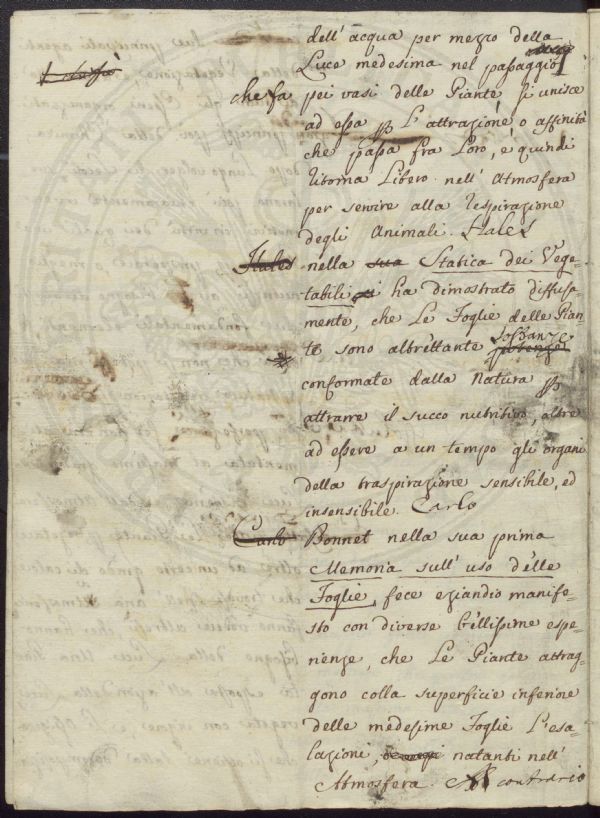 dell' acqua per mezzo della
Luce medesima nel passaggio
che fa pei vasi delle Piante si unisce
ad essa p L'attrazione o affinità
che passa fra Loro, e quindi
ritorna Libero nell' Atmosfera
per servire alla respirazione
degli Animali. Hales
Hales nella sua Statica dei Vege-
tabili ha dimostrato diffusa-
mente, che Le Foglie delle Pian-
te sono altrettante sostanze
conformate dalla Natura p
attrarre il succo nutritivo, altre
ad essere a un tempo gli organi
della traspirazione sensibile, ed
insensibile. Carlo
Carlo Bonnet nella sua prima
Memoria sull' uso delle
Foglie, fece eziandio manife-
sto con diverse bellissime espe-
rienze, che Le Piante attrag-
gono colla superficie inferiore
delle medesime Foglie L'esa-
lazioni, natanti nell'
Atmosfera. Al contrario